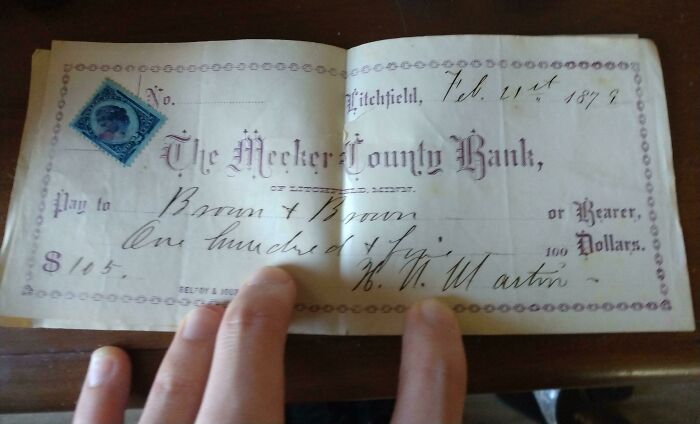 No.
Litchfield, Feb. 21st 1879
The Meeker County Bank,
OF LITCHFIELD, MINN.
Pay to Brown & Brown or Bearer,
One hundred & five 100 Dollars.
$ 105.
H. N. Martin
BELFOY &